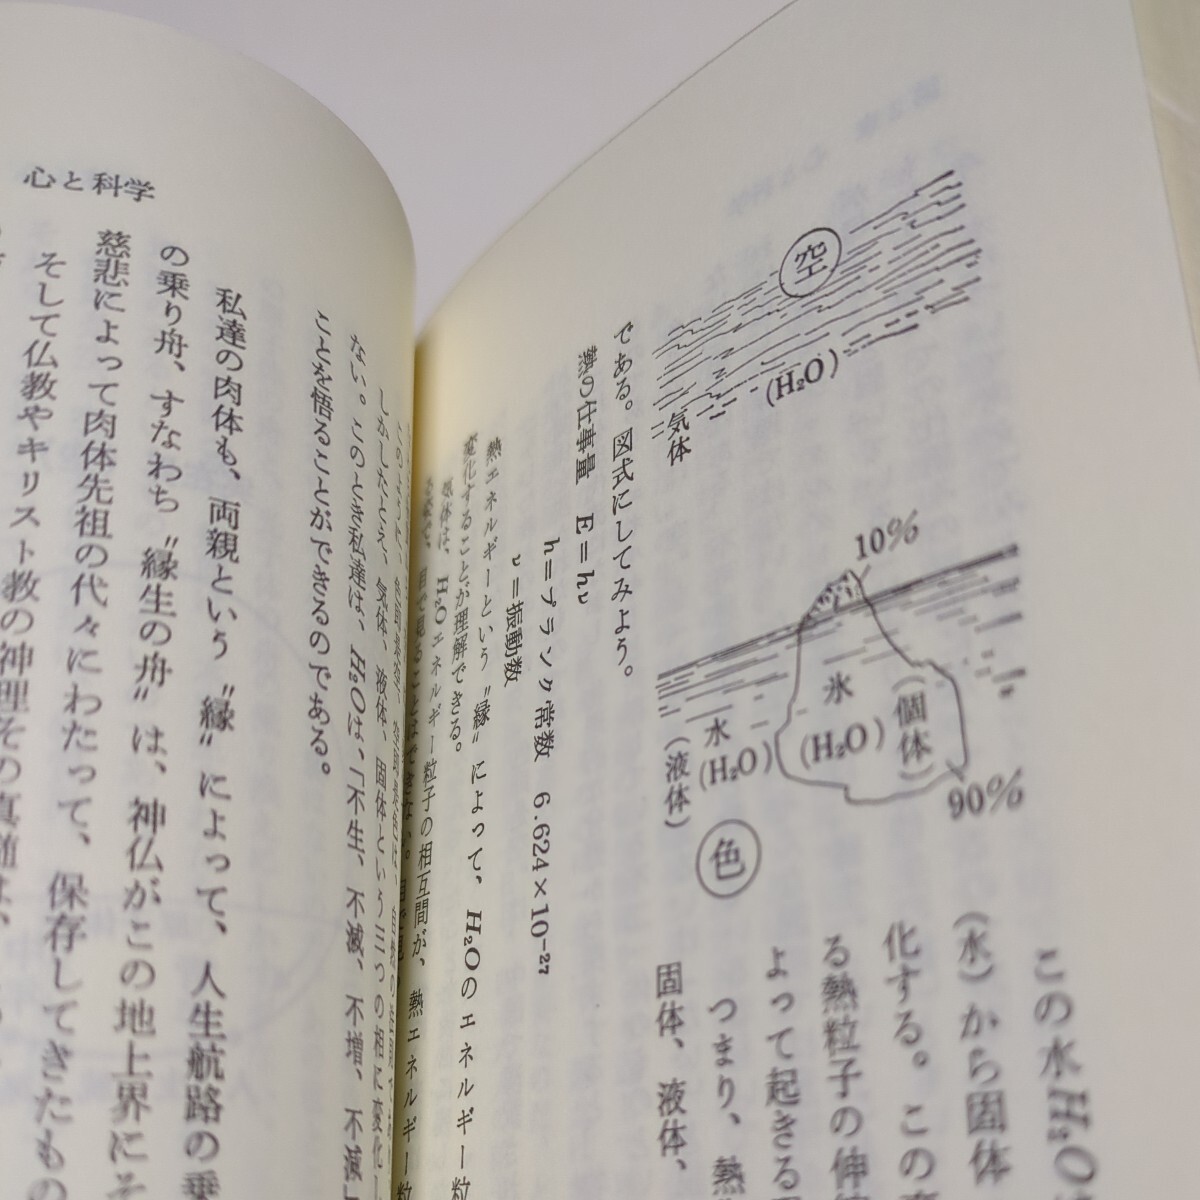 空
(H₂O)
気体
10%
氷
(H₂O)
(個体)
90%
水
(H₂O)
(液体)
色
この水H₂O
(水)から固体
化する。この
る熱粒子の伸
よって起きる
つまり、熱
固体、液体、
である。図式にしてみよう。
熱の仕事量 E=hν
h=プランク常数 6.624×10⁻²⁷
ν=振動数
熱エネルギーという〝縁〟によって、H₂Oのエネルギー粒
変化することが理解できる。
H₂Oエネルギー粒子の相互間が、熱エネルギー粒
しかしたとえ、気体、液体、固体という三つの相に変化し
ない。このとき私達は、H₂Oは、「不生、不滅、不増、不減」
ことを悟ることができるのである。
心と科学
私達の肉体も、両親という〝縁〟によって、人生航路の乗
の乗り舟、すなわち〝縁生の舟〟は、神仏がこの地上界にそ
慈悲によって肉体先祖の代々にわたって、保存してきたもの
そして仏教やキリスト教の神理その真髄は、